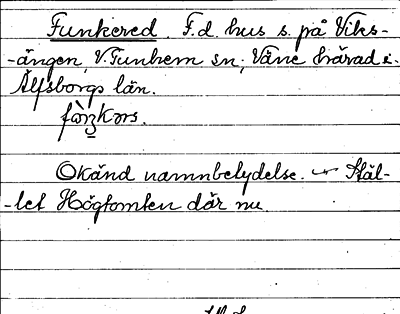 Funkered. F.d. hus s. på Viks-
-ängen, V. Tunhem sn; Väne härad i.
Älfsborgs län.
Okänd namnbetydelse. Stäl-
-let Högtomten där nu.